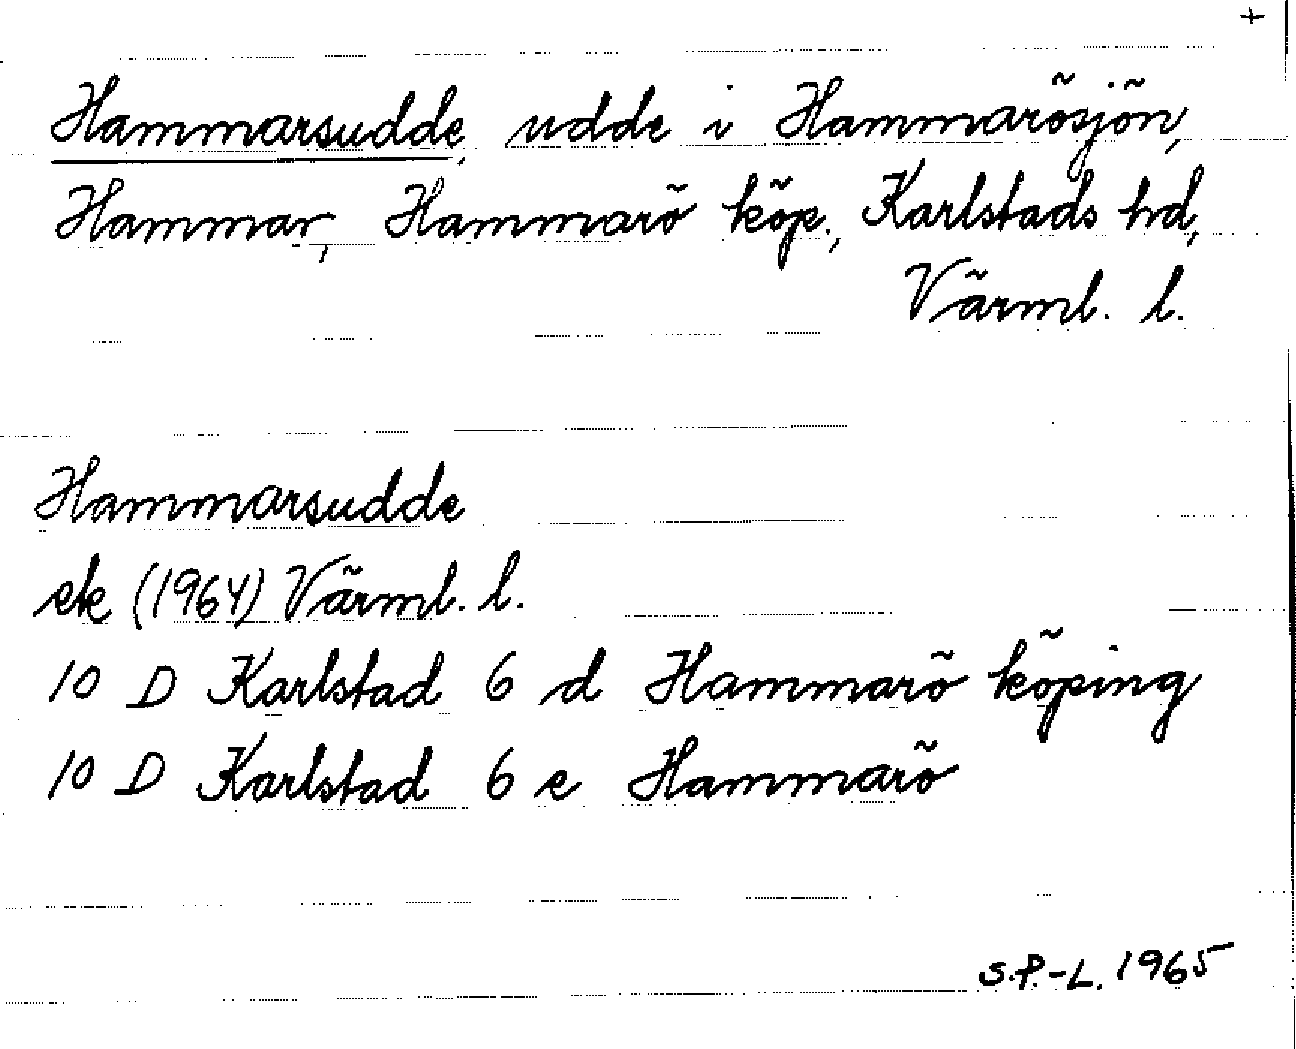 +
Hammarsudde, udde i Hammarösjön,
Hammar, Hammarö köp., Karlstads hd,
Värml. l.
Hammarsudde
ek (1964) Värml. l.
10 D Karlstad 6 d Hammarö köping
10 D Karlstad 6 e Hammarö
S.P.-L. 1965